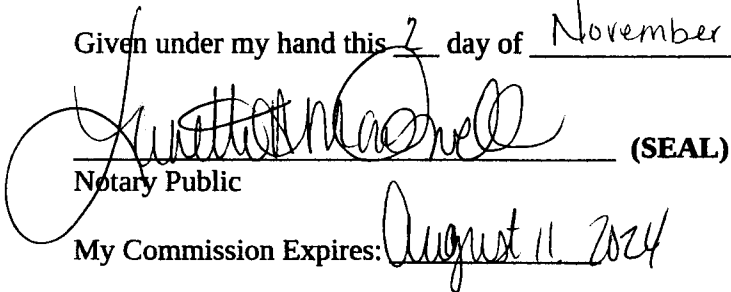 Given under my hand this 2 day of November
(SEAL)
Notary Public
My Commission Expires: August 11 2024